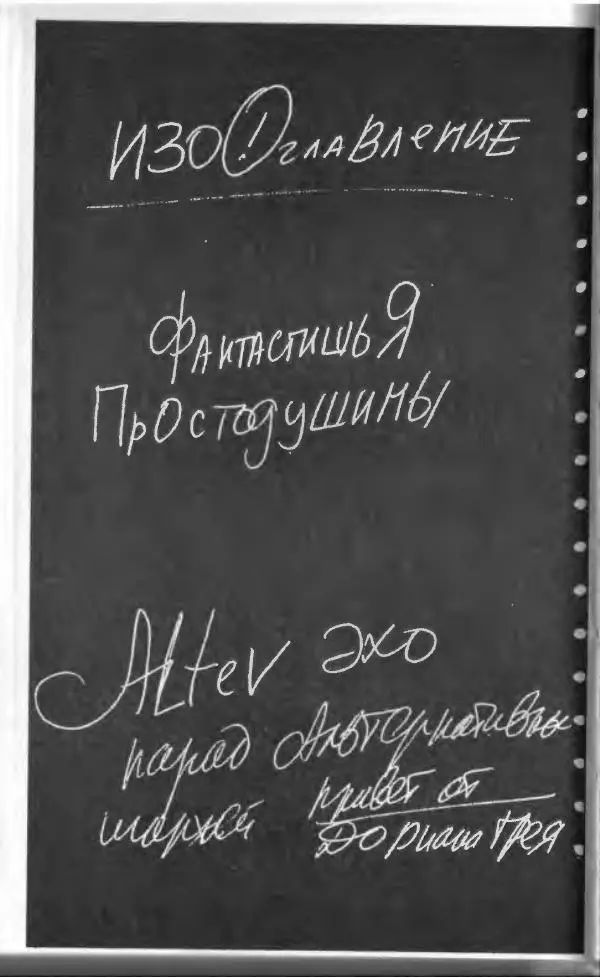 ИЗО(!)оглавление
ФантастишьЯ
Простодушины
Alter эхо
парад Альтернативных
шаржей привет от
Дориана Грея